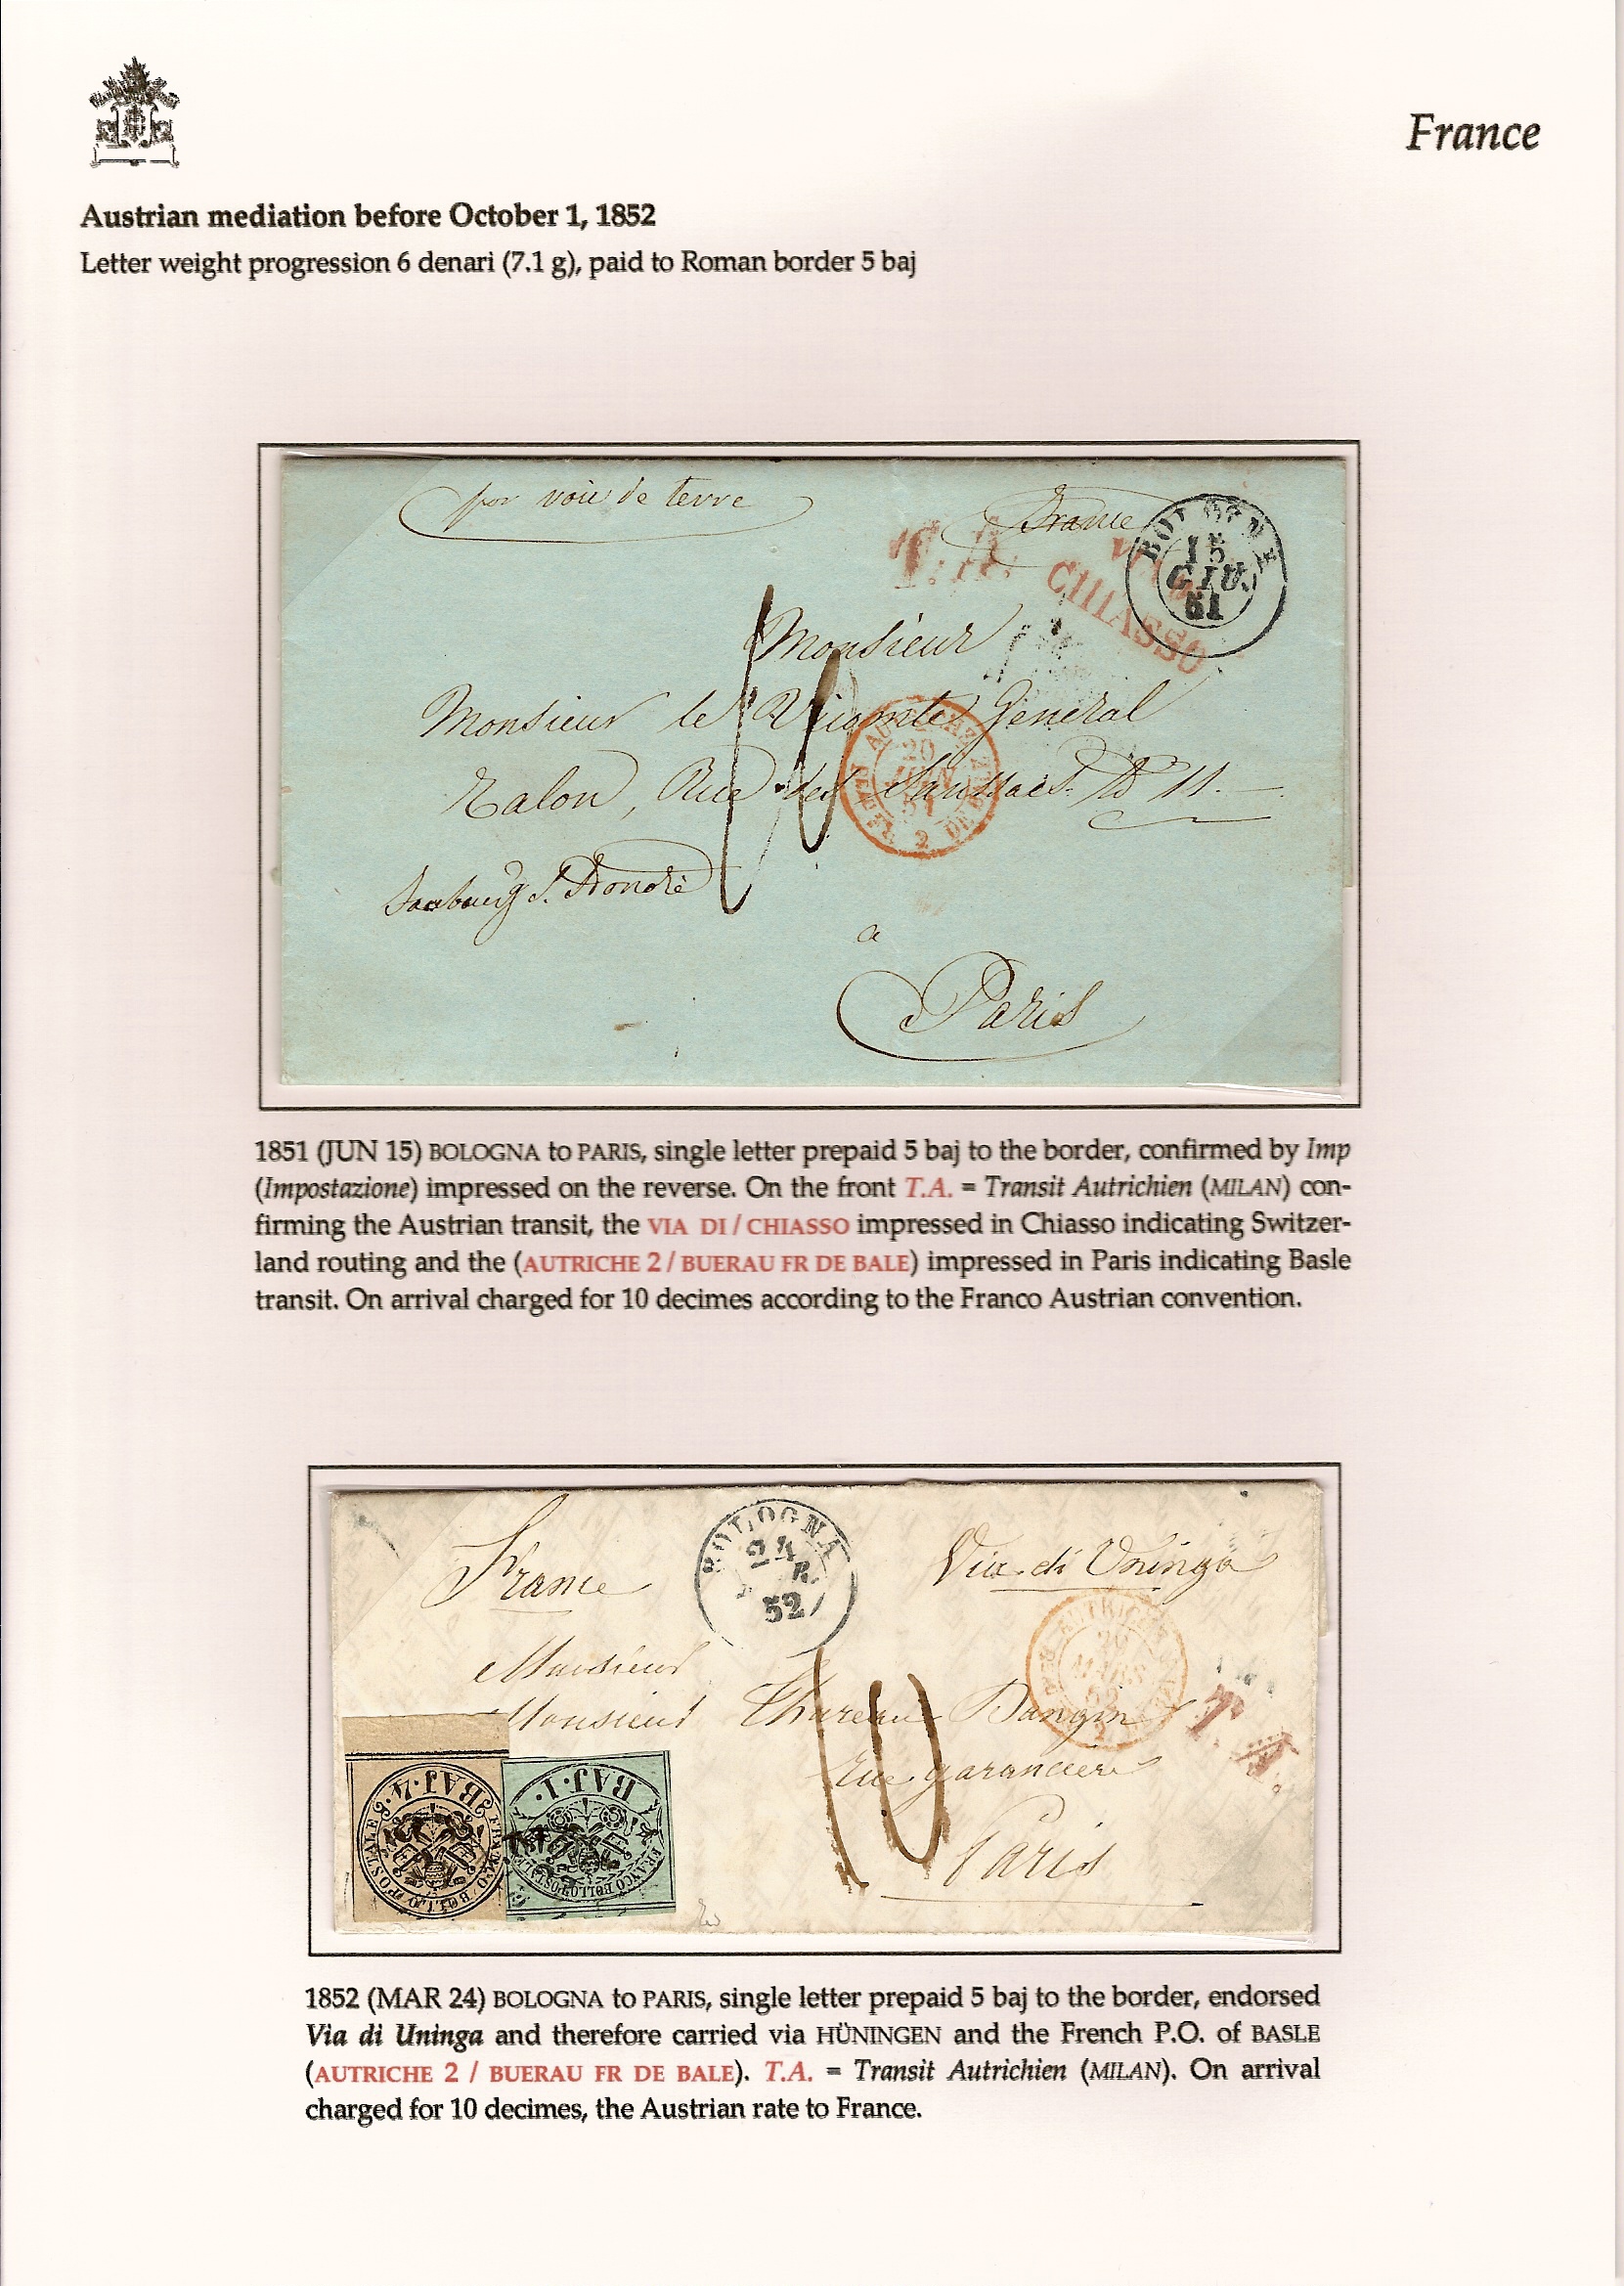 France
Austrian mediation before October 1, 1852
Letter weight progression 6 denari (7.1 g), paid to Roman border 5 baj
par voie de terre
France
BOLOGNA
15
GIU.
51
T.A.
VIA DI
CHIASSO
Monsieur
Monsieur le Vicomte Général
Talon, Rue des Saussaies No 11.
10
AUTRICHE
20
JUIN
51
2
Faubourg St. Honoré
a
Paris
1851 (JUN 15) BOLOGNA to PARIS, single letter prepaid 5 baj to the border, confirmed by Imp
(Impostazione) impressed on the reverse. On the front T.A. = Transit Autrichien (MILAN) con-
firming the Austrian transit, the VIA DI / CHIASSO impressed in Chiasso indicating Switzer-
land routing and the (AUTRICHE 2 / BUERAU FR DE BALE) impressed in Paris indicating Basle
transit. On arrival charged for 10 decimes according to the Franco Austrian convention.
France
BOLOGNA
24
52
Via di Uninga
AUTRICHE
MARS
52
2
T.A.
Monsieur
Monsieur Thureau Dangin
rue garanciere
10
Paris
BAJ. 4.
FRANCO BOLLO POSTALE
BAJ. 1.
FRANCO BOLLO POSTALE
1852 (MAR 24) BOLOGNA to PARIS, single letter prepaid 5 baj to the border, endorsed
Via di Uninga and therefore carried via HÜNINGEN and the French P.O. of BASLE
(AUTRICHE 2 / BUERAU FR DE BALE). T.A. = Transit Autrichien (MILAN). On arrival
charged for 10 decimes, the Austrian rate to France.